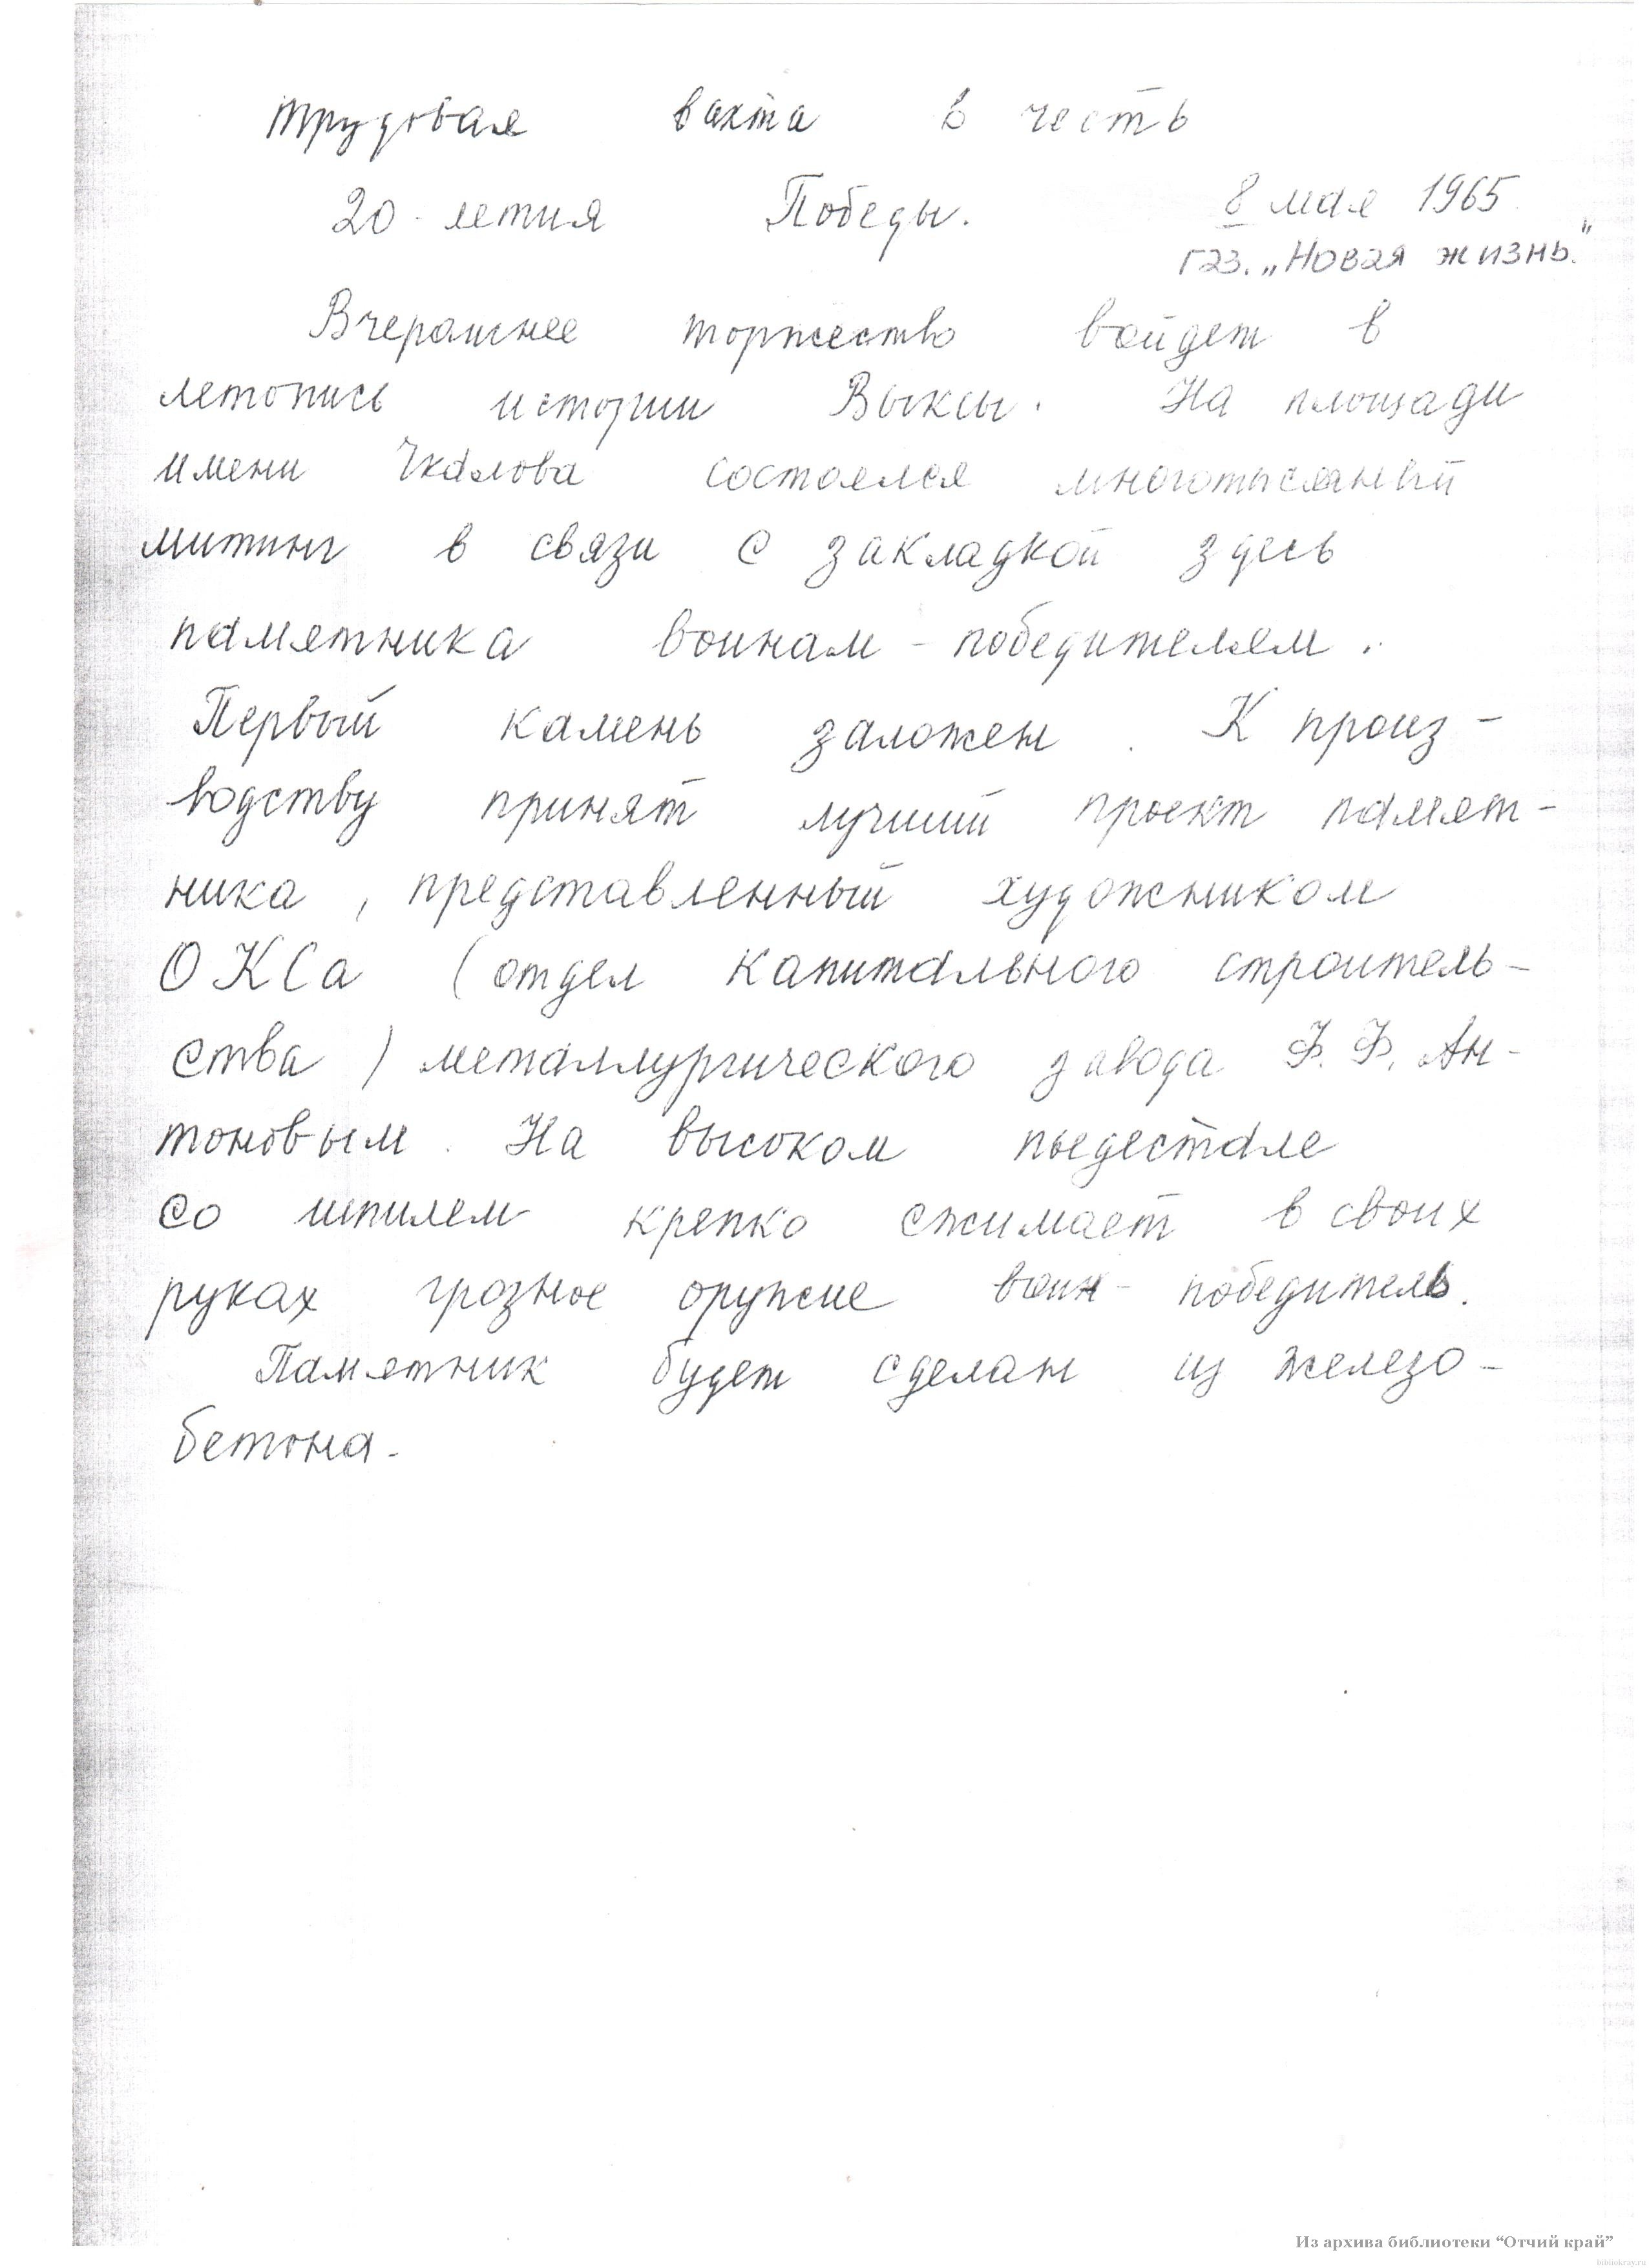 трудовая вахта в честь
20-летия Победы.
8 мая 1965
газ. „Новая жизнь."
Вчерашнее торжество войдет в
летопись истории Выксы. На площади
имени Чкалова состоялся многотысячный
митинг в связи с закладкой здесь
памятника воинам-победителям.
Первый камень заложен. К произ-
водству принят лучший проект памят-
ника, представленный художником
ОКСа (отдел капитального строитель-
ства) металлургического завода Ф. Ф. Ан-
тоновым. На высоком пьедестале
со шпилем крепко сжимает в своих
руках грозное оружие воин-победитель.
Памятник будет сделан из железо-
бетона.
Из архива библиотеки “Отчий край”